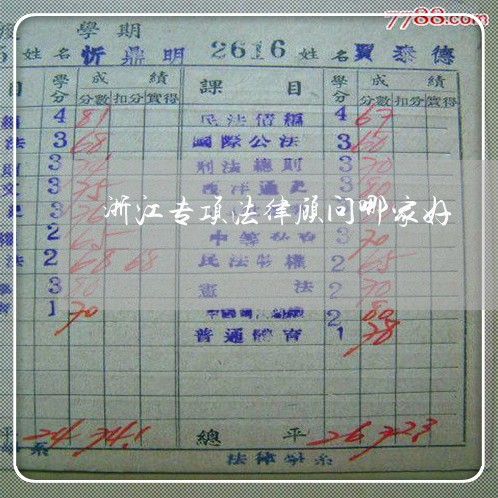 7788.com
學期
姓名 忻鼎明 2616 姓名 賈泰德
目 學分 成績 課目 學分 成績
分數 扣分 實得 分數 扣分 實得
4 81 民法債編 4 67
法 3 68 國際公法 3 60
3 刑法總則 3 70
3 75 西洋通史 3
浙江专项法律顾问哪家好
2 65 3 70
法 2 68 68 民法物權 2 65
3 憲法 2 70
1 70 2 80
普通體育 1 78
平 24 74.1 總平 26 72.3
系 法律學系